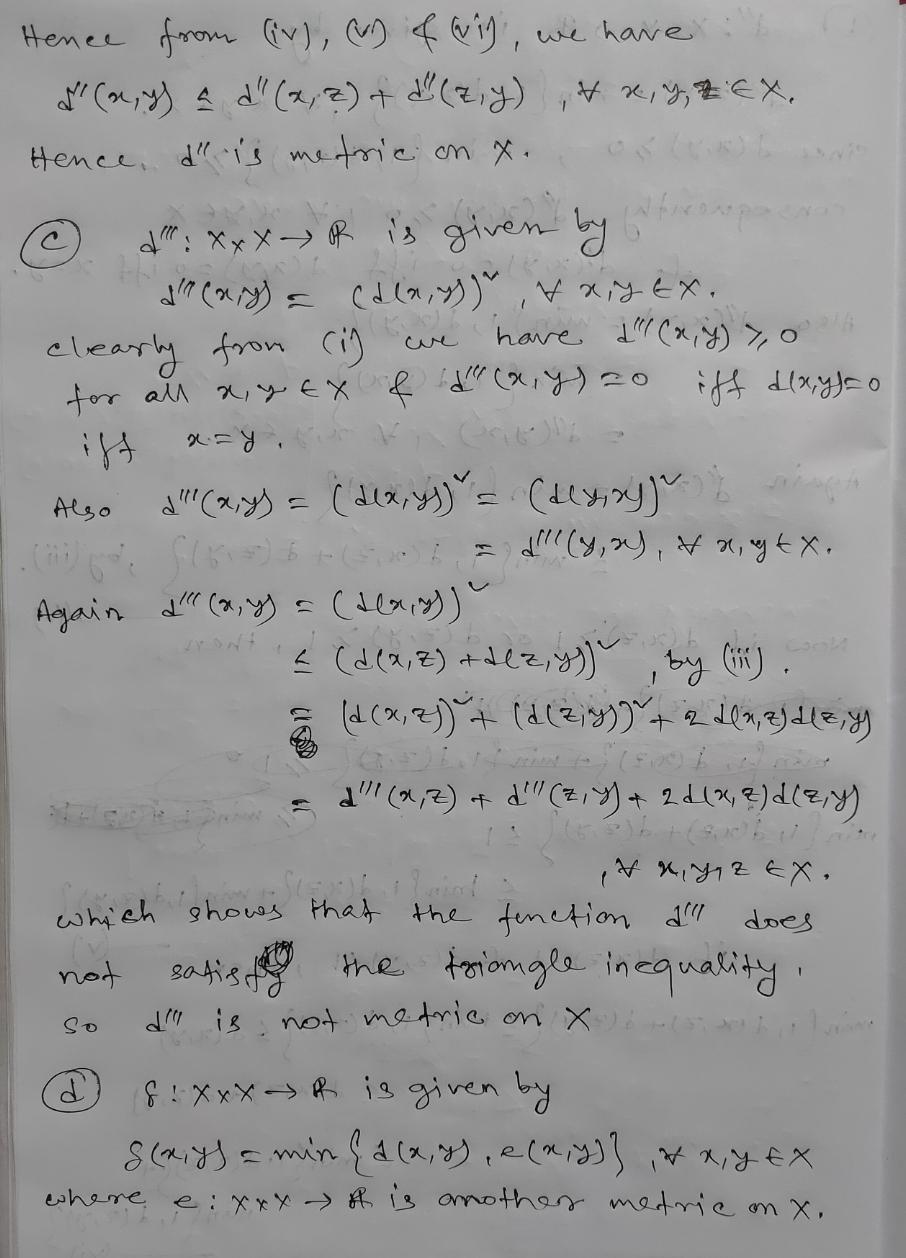 Hence from (iv), (v) & (vi), we have
d''(x,y) ≤ d''(x,z) + d''(z,y) , ∀ x,y,z ∈ X.
Hence, d'' is metric on X.
(c) d''' : X×X → R is given by
d'''(x,y) = (d(x,y))² , ∀ x,y ∈ X.
clearly from (i) we have d'''(x,y) ≥ 0
for all x,y ∈ X & d'''(x,y) = 0 iff d(x,y)=0
iff x=y.
Also d'''(x,y) = (d(x,y))² = (d(y,x))²
= d'''(y,x), ∀ x,y ∈ X.
Again d'''(x,y) = (d(x,y))²
≤ (d(x,z) + d(z,y))² , by (iii).
= (d(x,z))² + (d(z,y))² + 2 d(x,z) d(z,y)
= d'''(x,z) + d'''(z,y) + 2d(x,z) d(z,y)
, ∀ x,y,z ∈ X.
which shows that the function d''' does
not satisfy the triangle inequality.
So d''' is not metric on X
(d) δ : X×X → R is given by
δ(x,y) = min {d(x,y), e(x,y)} , ∀ x,y ∈ X
where e : X×X → R is another metric on X.